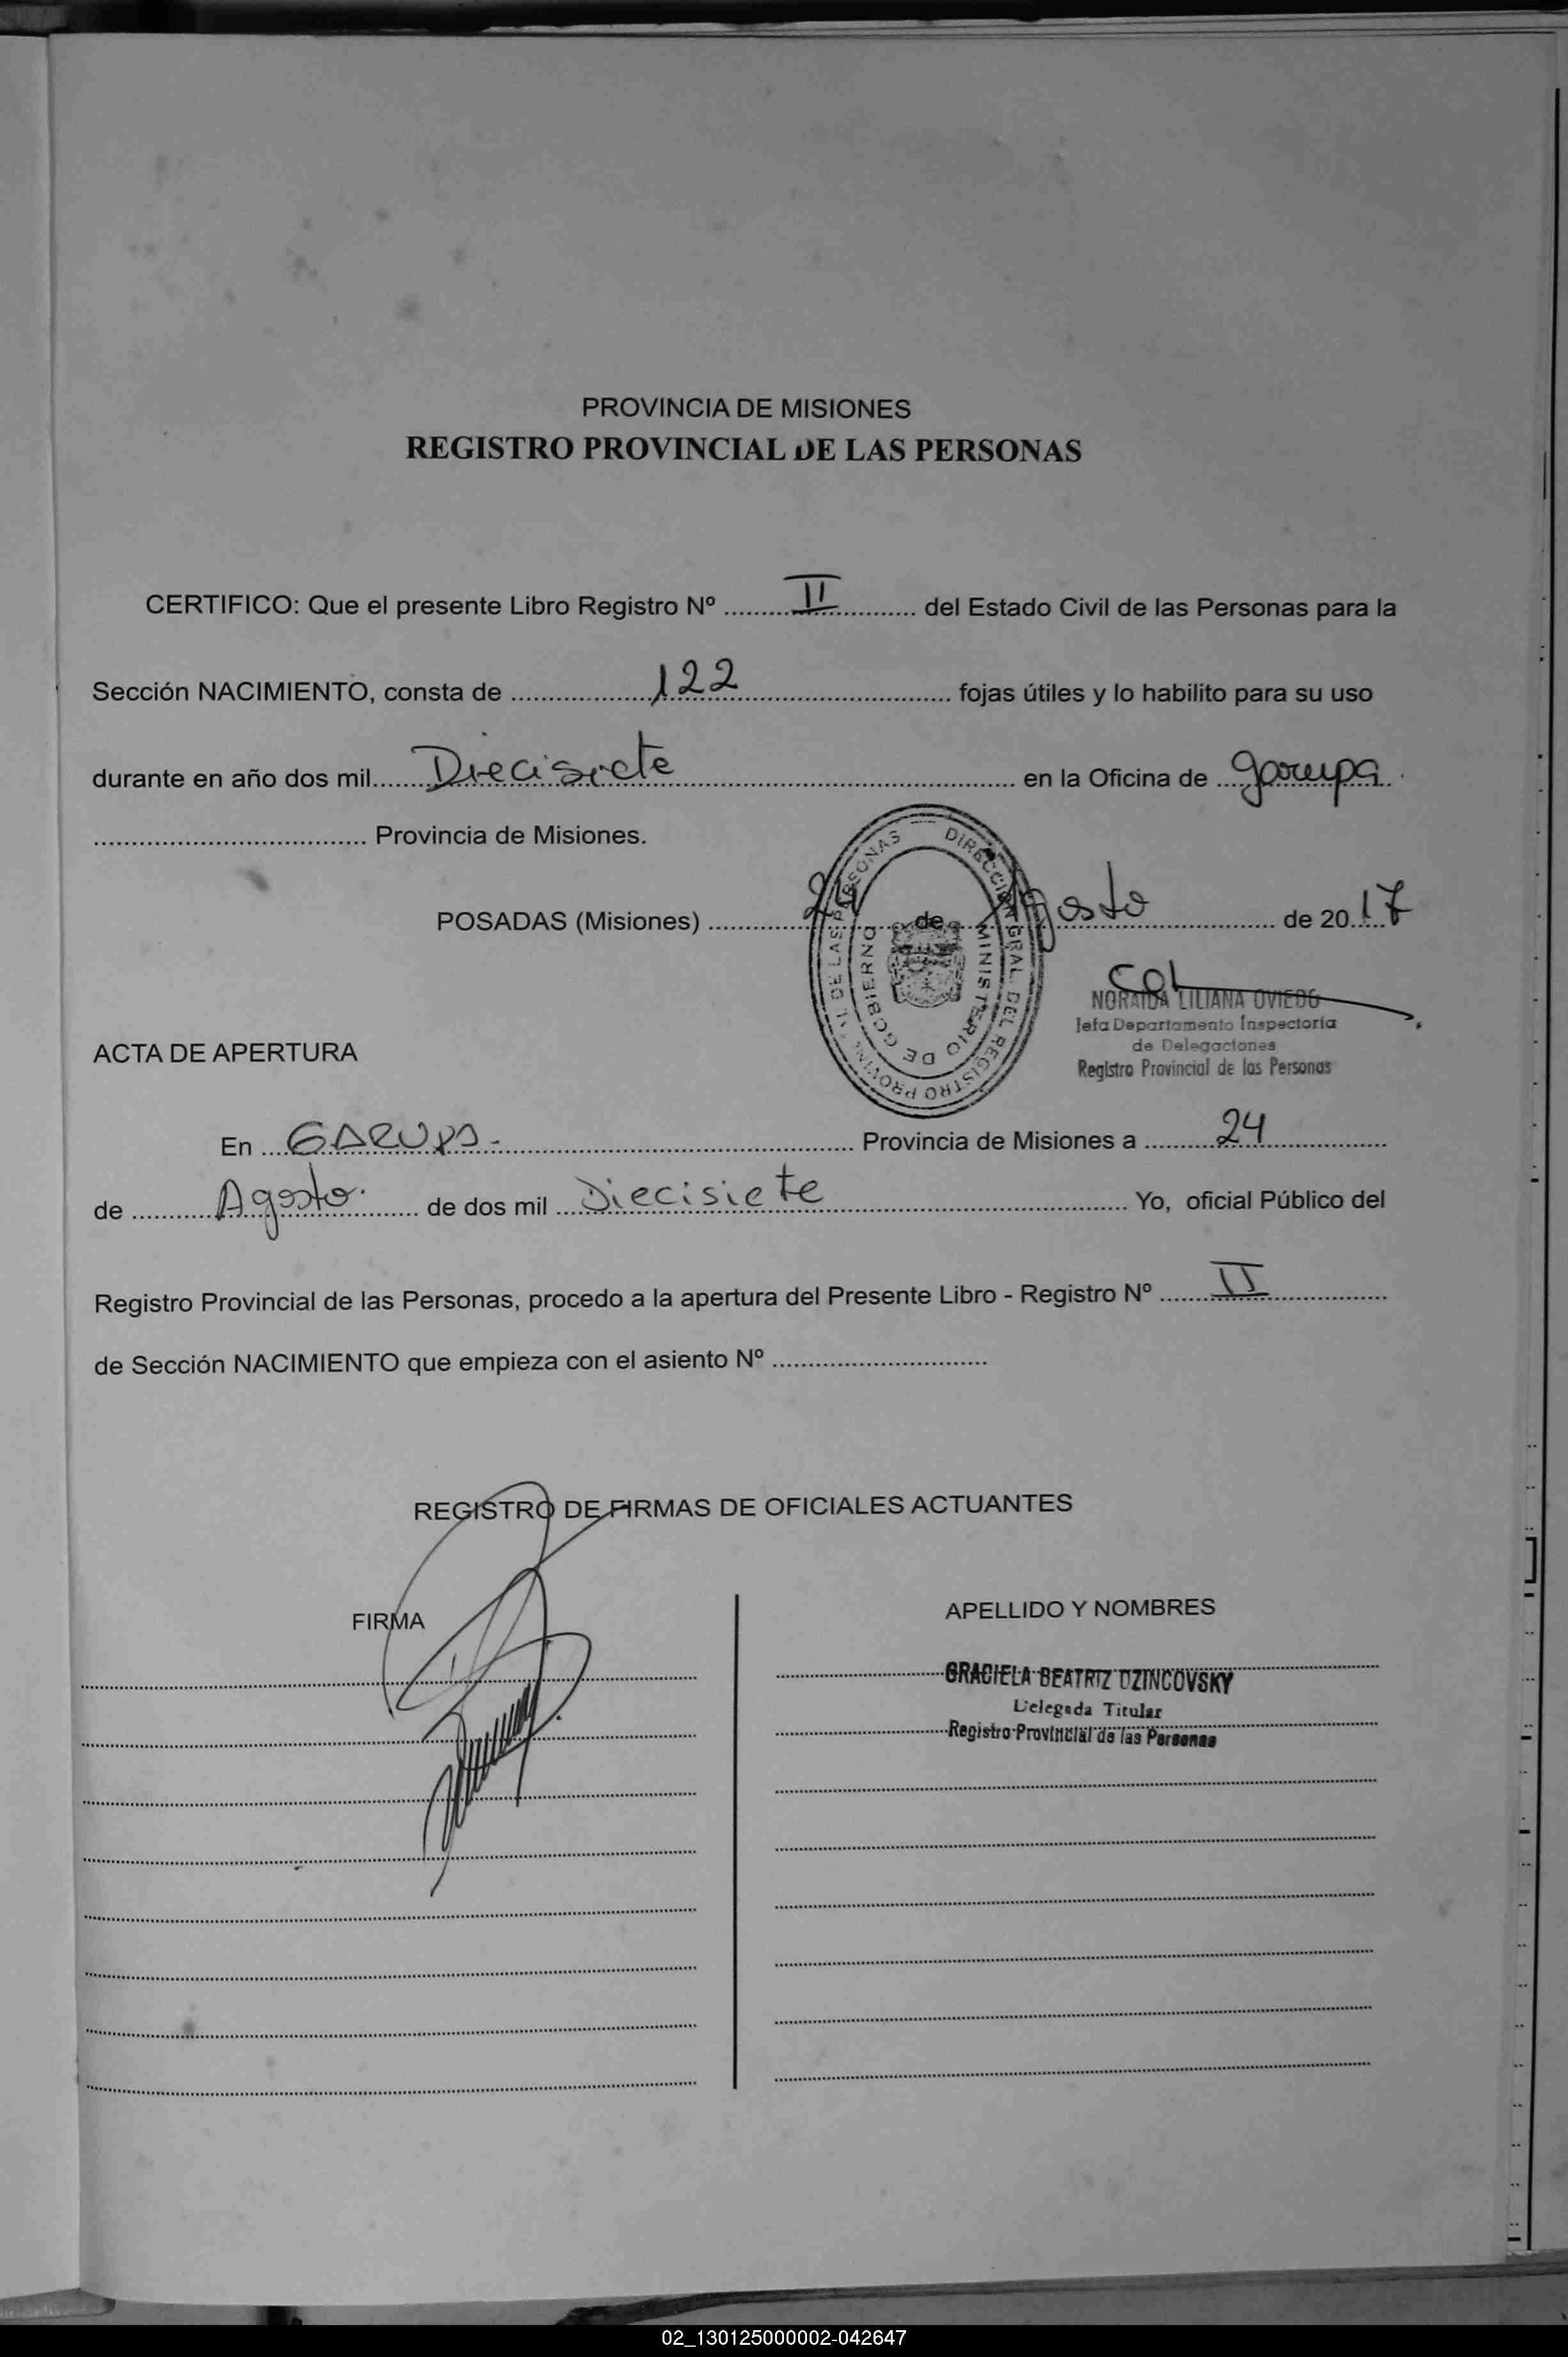 PROVINCIA DE MISIONES
REGISTRO PROVINCIAL DE LAS PERSONAS
CERTIFICO: Que el presente Libro Registro Nº II del Estado Civil de las Personas para la
Sección NACIMIENTO, consta de 122 fojas útiles y lo habilito para su uso
durante en año dos mil Diecisiete en la Oficina de Garupa
Provincia de Misiones.
POSADAS (Misiones) 24 de Agosto de 2017
DIRECCION GRAL. DEL REGISTRO PROVINCIAL DE LAS PERSONAS
MINISTERIO DE GOBIERNO
NORAIDA LILIANA OVIEDO
Jefa Departamento Inspectoria
de Delegaciones
Registro Provincial de las Personas
ACTA DE APERTURA
En GARUPA. Provincia de Misiones a 24
de Agosto. de dos mil Diecisiete Yo, oficial Público del
Registro Provincial de las Personas, procedo a la apertura del Presente Libro - Registro Nº II
de Sección NACIMIENTO que empieza con el asiento Nº
REGISTRO DE FIRMAS DE OFICIALES ACTUANTES
FIRMA
APELLIDO Y NOMBRES
GRACIELA BEATRIZ DZINCOVSKY
Delegada Titular
Registro Provincial de las Personas
02_130125000002-042647